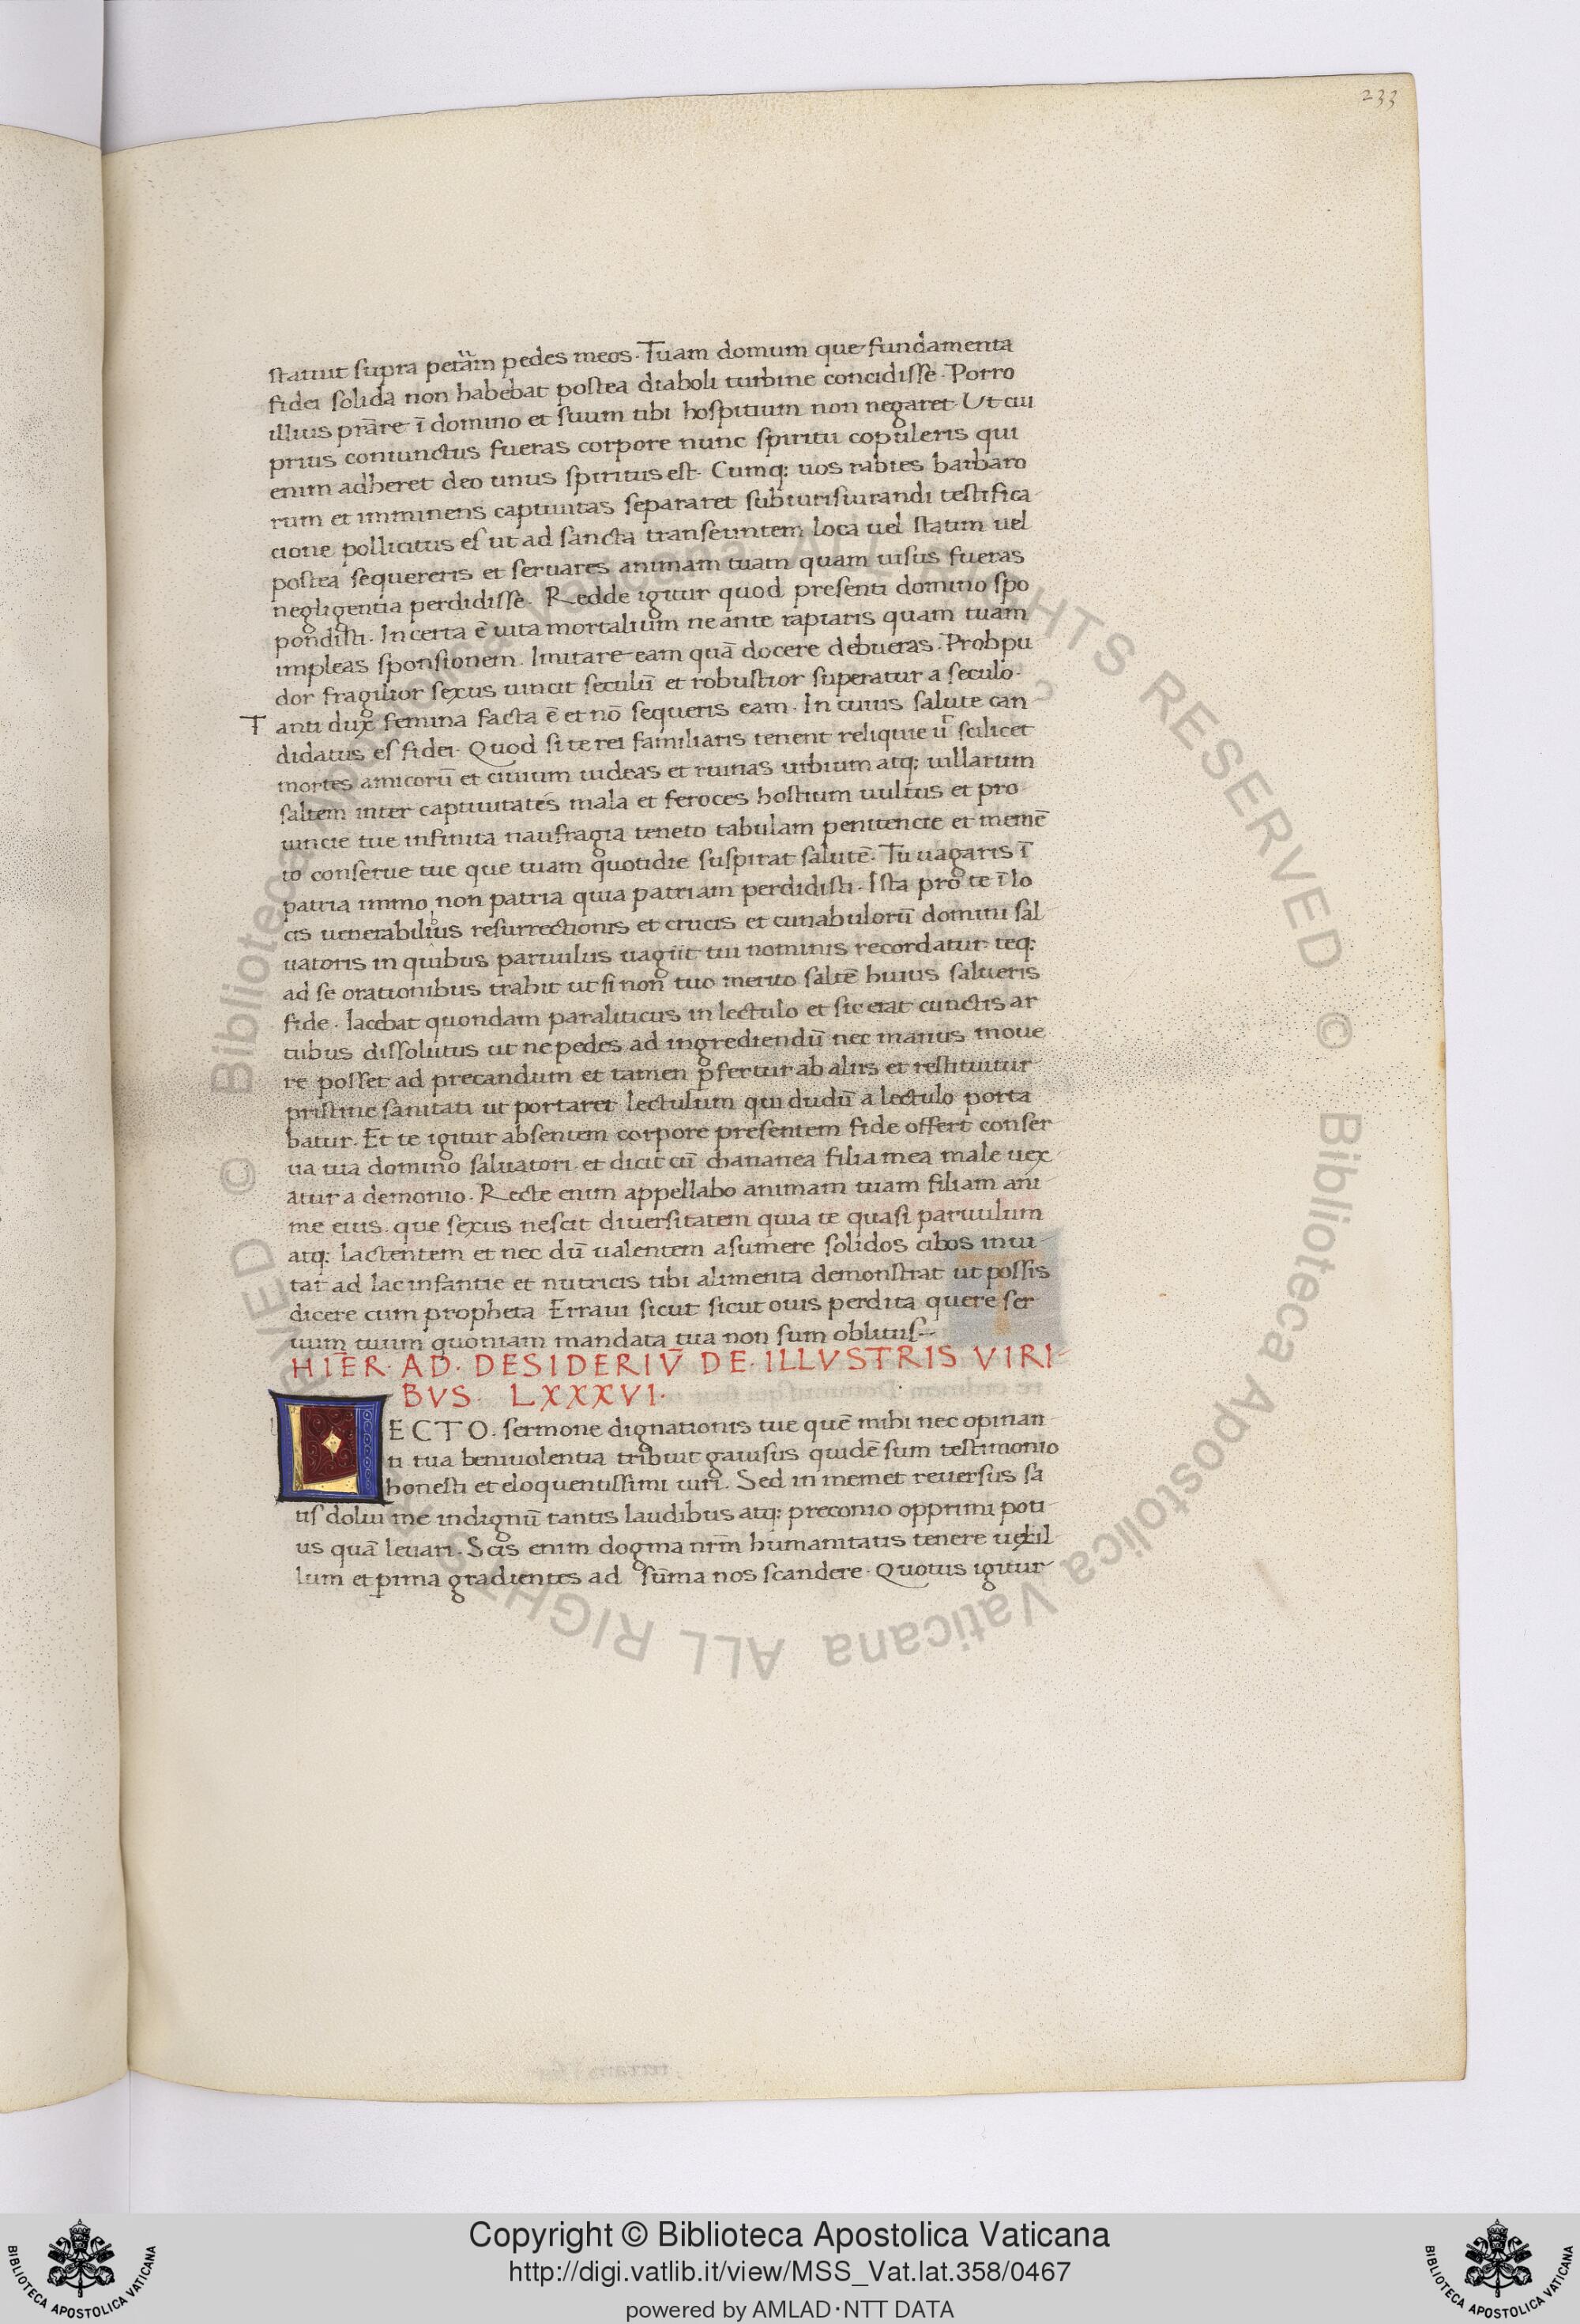 233
statuit supra petrā̄m pedes meos. Tuam domum que fundamenta
fidei solida non habebat postea diaboli turbine concidisse. Porro
illius prāre ī domino et suum tibi hospitium non negaret. Ut cui
prius coniunctus fueras corpore nunc spiritu copuleris qui
enim adheret deo unus spiritus est. Cumq; uos rabies barbaro
rum et imminens captiuitas separaret sub iurisiurandi testifica
cione pollicitus es ut ad sancta transeuntem loca uel statim uel
postea sequereris et seruares animam tuam quam uisus fueras
negligentia perdidisse. Redde igitur quod presenti domino spo
pondisti. Incerta ē uita mortalium ne ante rapiaris quam tuam
impleas sponsionem. Imitare eam quā docere debueras. Proh pu
dor fragilior sexus uincit seculū et robustior superatur a seculo.
T anti dux femina facta ē et nō sequeris eam. In cuius salute can
didatus es fidei. Quod si te rei familiaris tenent reliquie ut̄ scilicet
mortes amicorū et ciuium uideas et ruinas urbium atq; uillarum
saltem inter captiuitates mala et feroces hostium uultus et pro
uincie tue infinita naufragia teneto tabulam penitencie et memē
to conserue tue que tuam quotidie suspirat salutē. Tu uagaris ī
patria immo non patria quia patriam perdidisti. Ista pro te ī lo
cis uenerabilibus resurrectionis et crucis et cunabulorū domini sal
uatoris in quibus paruulus uagiit tui nominis recordatur teq;
ad se orationibus trahit ut si non tuo merito saltē huius salueris
fide. Iacebat quondam paraliticus in lectulo et sic erat cunctis ar
tubus dissolutus ut ne pedes ad ingrediendū nec manus moue
re posset ad precandum et tamen p̄fertur ab aliis et restituitur
pristine sanitati ut portaret lectulum qui dudū a lectulo porta
batur. Et te igitur absentem corpore presentem fide offert conser
ua tua domino saluatori. et dicit cū chananea filia mea male uex
atur a demonio. Recte enim appellabo animam tuam filiam ani
me eius. que sexus nescit diuersitatem quia te quasi paruulum
atq; lactentem et nec dū ualentem asumere solidos cibos inui
tat ad lac infantie et nutricis tibi alimenta demonstrat ut possis
dicere cum propheta Erraui sicut sicut ouis perdita quere ser
uum tuum quoniam mandata tua non sum oblitus
HIER. AD. DESIDERIV̄ DE. ILLVSTRIS VIRI
BVS. LXXXVI.
LECTO. sermone dignationis tue quē mihi nec opinan
ti tua beniuolentia tribuit gauisus quidē sum testimonio
honesti et eloquentissimi uiri. Sed in memet reuersus sa
tis dolui me indignū tantis laudibus atq; preconio opprimi poti
us quā leuari. Scis enim dogma nr̄m humanitatis tenere uexil
lum et p̱ ima gradientes ad sūma nos scandere. Quotus igitur
© Biblioteca Apostolica Vaticana ALL RIGHTS RESERVED
© Biblioteca Apostolica Vaticana ALL RIGHTS RESERVED
Copyright © Biblioteca Apostolica Vaticana
http://digi.vatlib.it/view/MSS_Vat.lat.358/0467
powered by AMLAD·NTT DATA
BIBLIOTECA APOSTOLICA VATICANA
BIBLIOTECA APOSTOLICA VATICANA